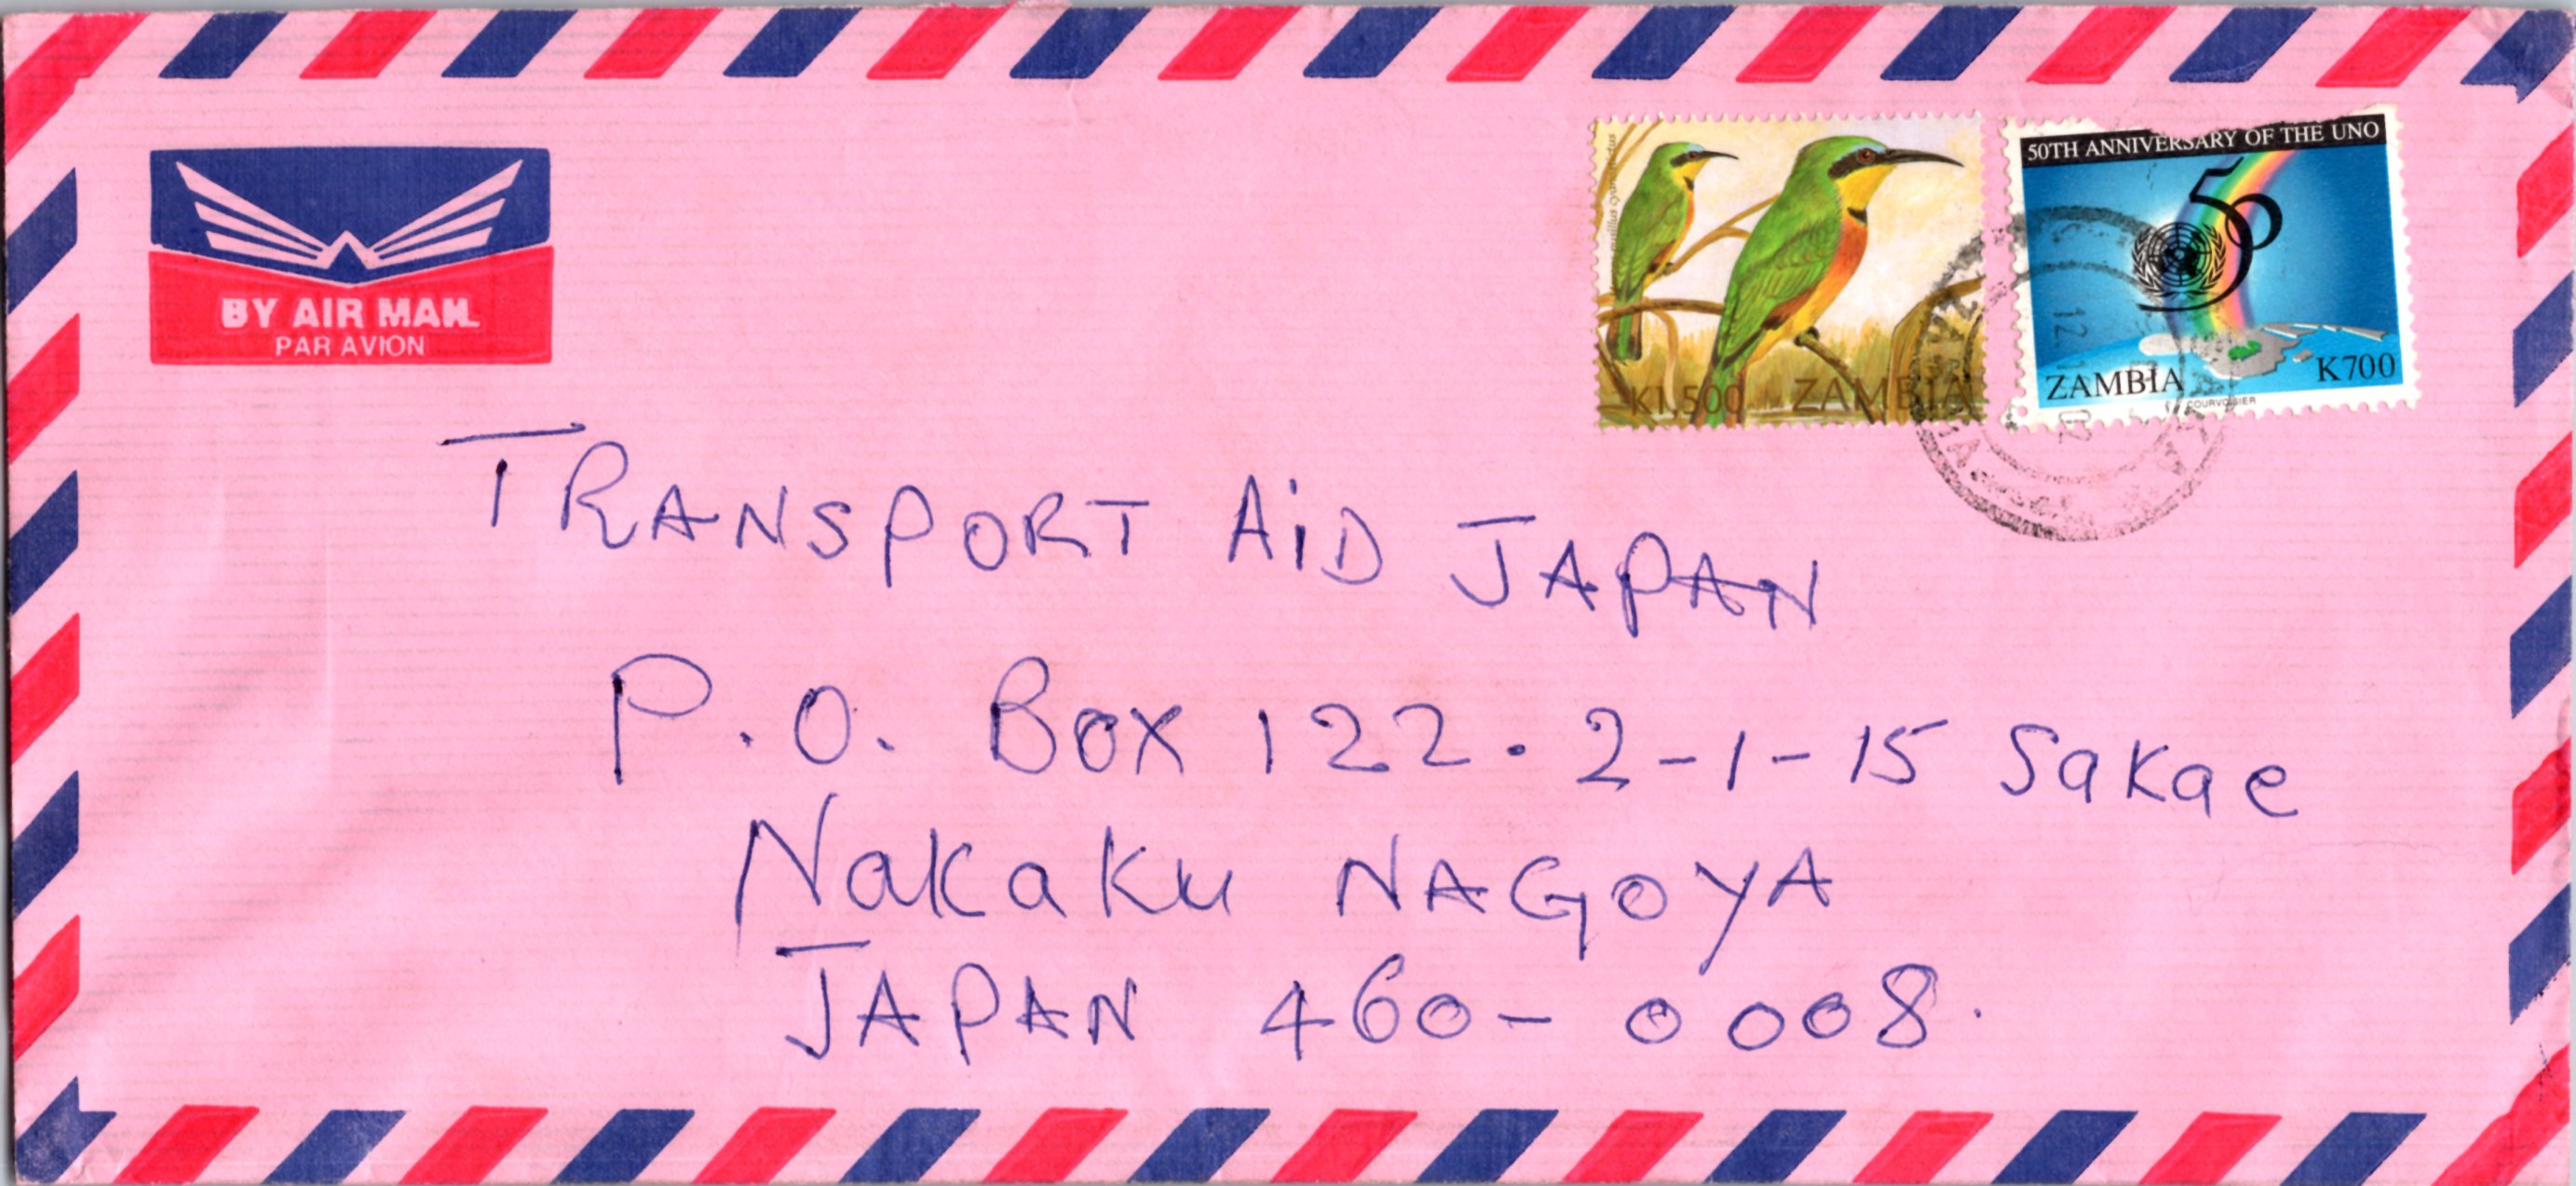 BY AIR MAIL
PAR AVION
K1,500 ZAMBIA
50TH ANNIVERSARY OF THE UNO
50
ZAMBIA K700
COURVOISIER
TRANSPORT AiD JAPAN
P.O. Box 122. 2-1-15 Sakae
Nakaku NAGOYA
JAPAN 460-0008.